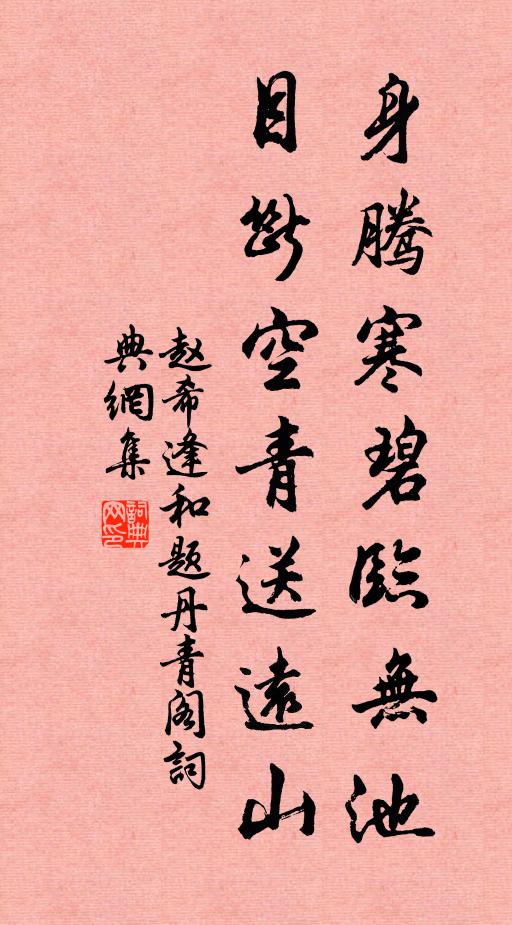 身騰寒碧臨無池
目斷空青送遠山
赵希逢和题丹青阁詞
典網集
詞典
网印